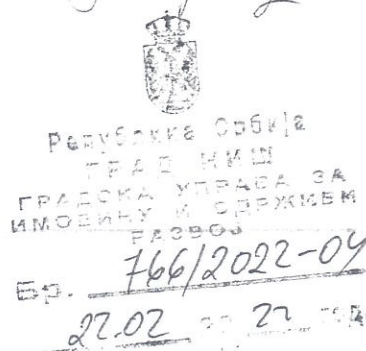 Република Србија
ГРАД НИШ
ГРАДСКА УПРАВА ЗА
ИМОВИНУ И ОДРЖИВИ
РАЗВОЈ
Бр. 766/2022-04
22.02 20 22 год